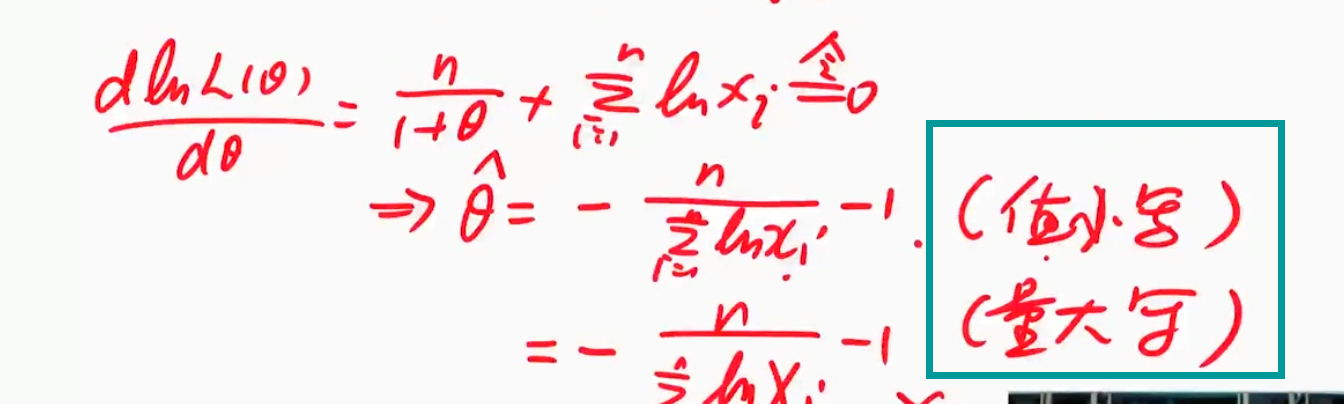 d ln L(θ) / dθ = n / (1+θ) + Σ_{i=1}^{n} ln x_i ≜ 0
⇒ θ̂ = - n / (Σ_{i=1}^{n} ln x_i) - 1. (值小写)
= - n / (Σ ln X_i) - 1 (量大写)